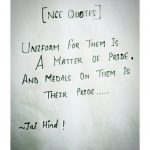 [NCC QUOTES]
UNIFORM FOR THEM IS
A MATTER OF PRIDE,
AND MEDALS ON THEM IS
THEIR PRIDE.....
~JAI HIND !